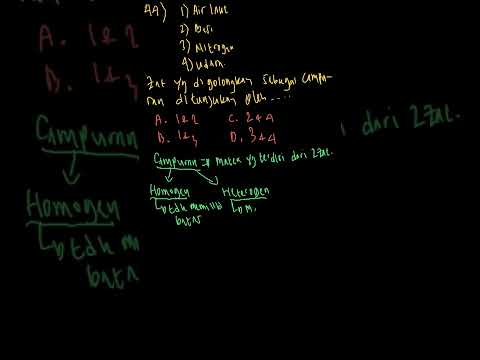 44) 1) Air laut
2) Besi
3) Nitrogen
4) Udara.
Zat yg digolongkan sebagai campu-
ran ditunjukan oleh ....
A. 1 & 2 C. 2 & 4
B. 1 & 3 D. 3 & 4
Campuran => materi yg terdiri dari 2 zat.
Homogen Heterogen
tdk memiliki
batas
M.
A. 1 & 2
B. 1 & 3
Campuran
Homogen
tdk m
batas
dari 2 zat.